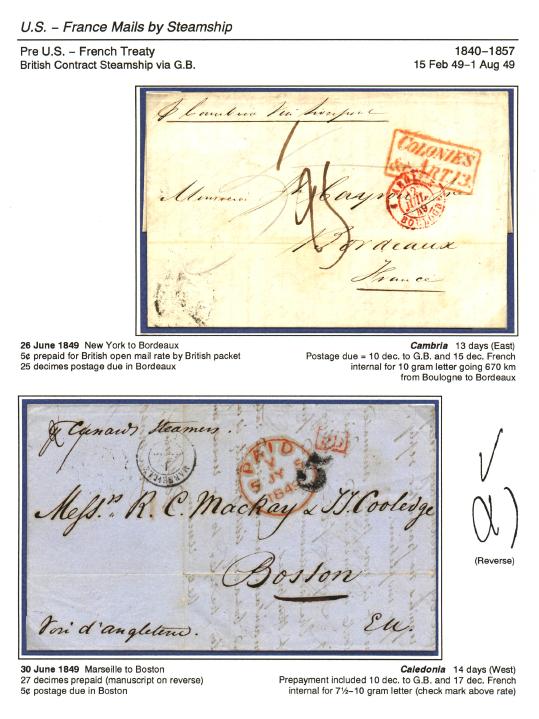 U.S. – France Mails by Steamship
Pre U.S. – French Treaty
1840–1857
British Contract Steamship via G.B.
15 Feb 49–1 Aug 49
p Cambria via Liverpool
COLONIES
&c. ART. 13.
Monsieur
BOULOGNE
25
Bordeaux
France
26 June 1849 New York to Bordeaux
5¢ prepaid for British open mail rate by British packet
25 decimes postage due in Bordeaux
Cambria 13 days (East)
Postage due = 10 dec. to G.B. and 15 dec. French
internal for 10 gram letter going 670 km
from Boulogne to Bordeaux
p Cunard Steamers.
MARSEILLE
PAID
V
5 JY 5
1849
5
Messrs R. C. Mackay & J.S. Cooledge
Boston
Voie d'angleterre.
E.U.
(Reverse)
30 June 1849 Marseille to Boston
27 decimes prepaid (manuscript on reverse)
5¢ postage due in Boston
Caledonia 14 days (West)
Prepayment included 10 dec. to G.B. and 17 dec. French
internal for 7½–10 gram letter (check mark above rate)